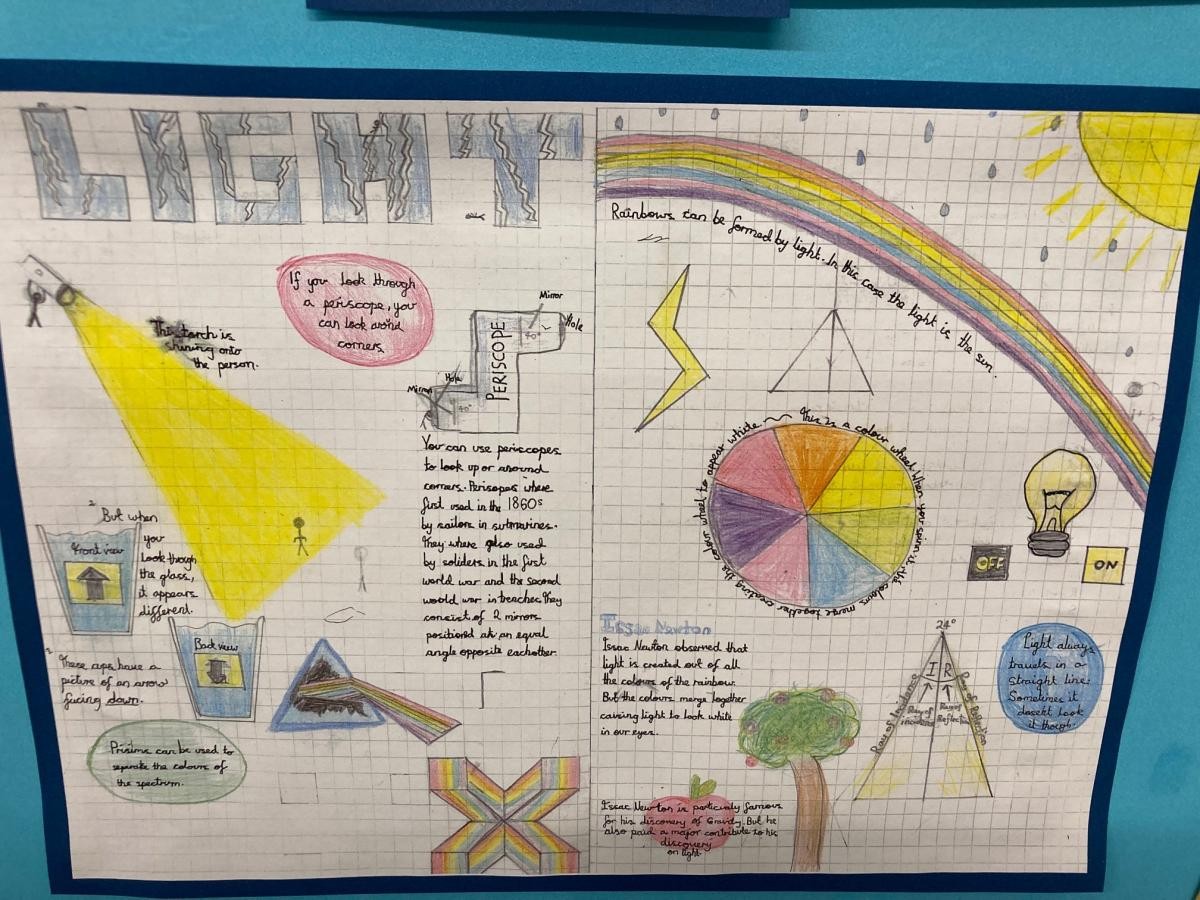 LIGHT
This torch is
shining onto
the person.
If you look through
a periscope, you
can look around
corners.
Mirror
Hole
PERISCOPE
Hole
Mirror
You can use periscopes
to look up or around
corners. Periscopes where
first used in the 1860s
by sailors in submarines.
They where also used
by soliders in the first
world war and the second
world war in trenches. They
consist of 2 mirrors
positioned at an equal
angle opposite eachother.
2 But when
you
look though
the glass,
it appears
different.
Front view
Back view
These cups have a
picture of an arrow
facing down.
Prisims can be used to
separate the colours of
the spectrum.
Rainbows can be formed by light. In this case the light is the sun.
This is a colour wheel. When you spinn it, the colours merge together creating the colour wheel to appear white.
OFF
ON
Issac Newton
Issac Newton observed that
light is created out of all
the colours of the rainbow.
But the colours merge together
causing light to look white
in our eyes.
Issac Newton is particulaly famous
for his discovery of Gravity. But he
also paid a major contribute to his
discovery
on light.
24°
I R
Ray of Incidence
Ray of incidence
Ray of Reflection
Ray of Reflection
Light always
travels in a
straight line.
Sometimes it
dosen't look
it though.